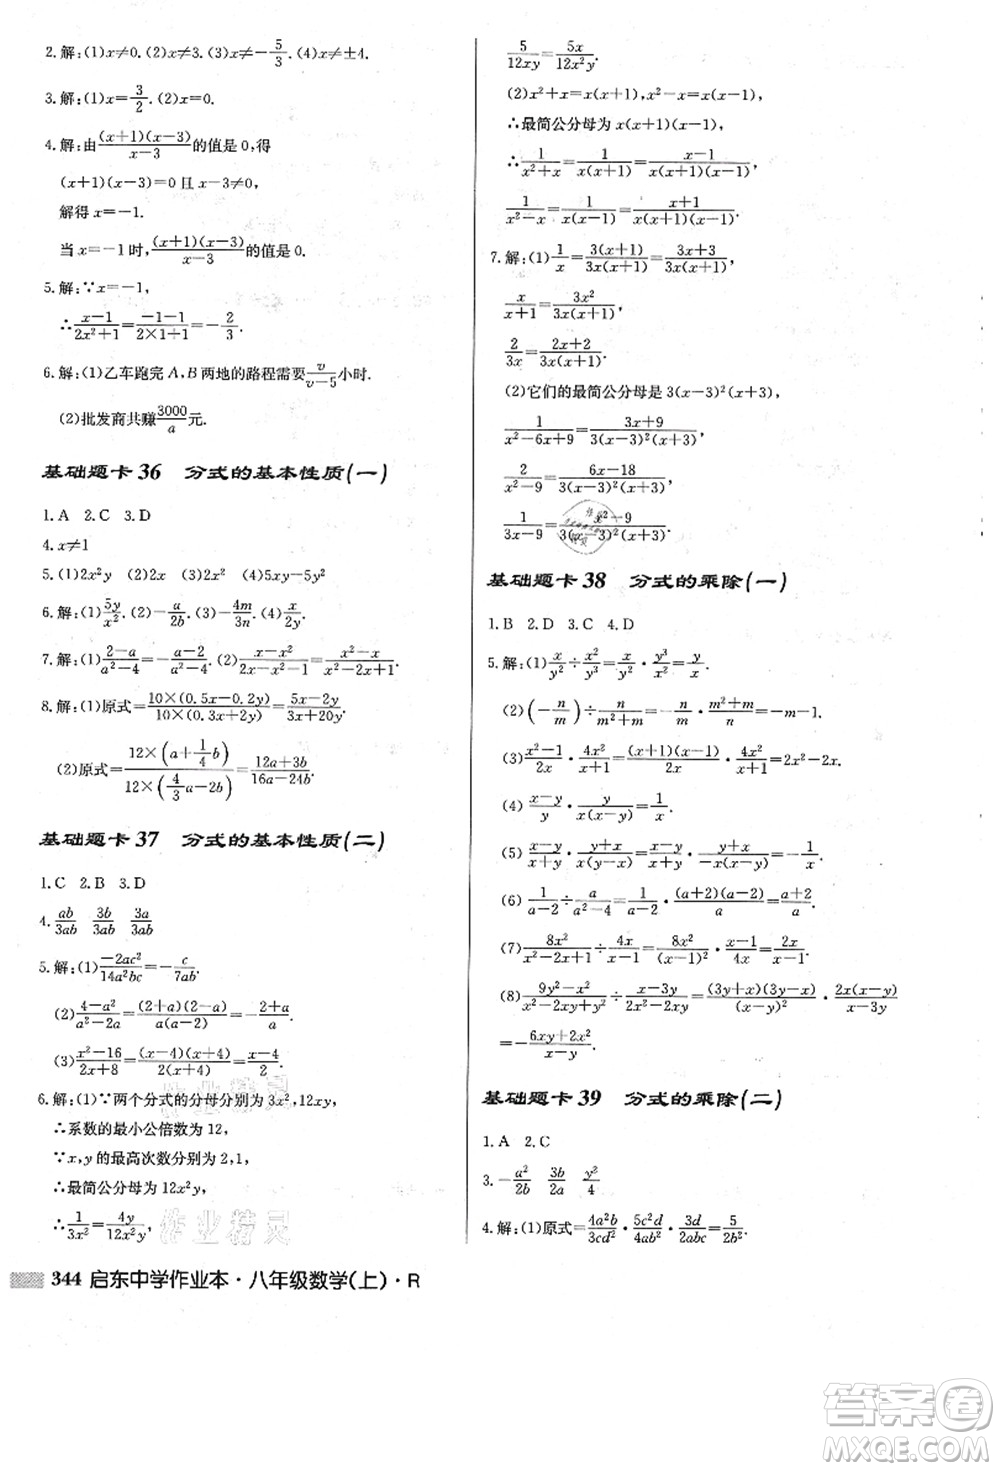 2.解:(1)x≠0.(2)x≠5.(3)x≠-5/3.(4)x≠±4.
3.解:(1)x=3/2.(2)x=0.
4.解:由(x+1)(x-3)/(x-3)的值是0,得
(x+1)(x-3)=0且x-3≠0,
解得x=-1.
当x=-1时,(x+1)(x-3)/(x-3)的值是0.
5.解:∵x=-1,
∴(x-1)/(2x²+1)=(-1-1)/(2×1+1)=-2/3.
6.解:(1)乙车跑完A,B两地的路程需要v/(v-5)小时.
(2)批发商共赚3000/a元.
基础题卡36 分式的基本性质(一)
1.A 2.C 3.D
4.x≠1
5.(1)2x²y (2)2x (3)2x² (4)5y
6.解:(1)5y/x².(2)-a/2b.(3)-4m/3n.(4)x/2y.
7.解:(1)(2-a)/(a²-a).(2)(x-x²)/(2x-x²-1)=(x²-x)/(x²-2x+1).
8.解:(1)原式=10×(0.5x-0.2y)/10×(0.3x+2y)=(5x-2y)/(3x+20y).
(2)原式=12×(a+1/4b)/12×(4/3a-2b)=(12a+3b)/(16a-24b).
基础题卡37 分式的基本性质(二)
1.C 2.B 3.D
4.ab/3ab 3b/3ab 3a/3ab
5.解:(1)-2ac²/14a²bc=-c/7ab.
(2)(4-a²)/(a²-2a)=(2+a)(2-a)/a(a-2)=-(2+a)/a.
(3)(x²-16)/(2x+8)=(x-4)(x+4)/2(x+4)=(x-4)/2.
6.解:(1)∵两个分式的分母分别为3x²,12xy,
∴系数的最小公倍数为12,
∵x,y的最高次数分别为2,1,
∴最简公分母为12x²y,
∴1/3x²=4y/12x²y,
5/12xy=5x/12x²y.
(2)x²+x=x(x+1),x²-x=x(x-1),
∴最简公分母为x(x+1)(x-1),
∴1/(x²+x)=1/x(x+1)=(x-1)/x(x+1)(x-1),
1/(x²-x)=1/x(x-1)=(x+1)/x(x+1)(x-1).
7.解:(1)1/x=3(x+1)/3x(x+1)=(3x+3)/3x(x+1),
x/(x+1)=3x²/3x(x+1),
2/3x=(2x+2)/3x(x+1).
(2)它们的最简公分母是3(x-3)²(x+3),
1/(x²-6x+9)=(3x+9)/3(x-3)²(x+3),
2/(x²-9)=(6x-18)/3(x-3)²(x+3),
1/(3x-9)=(x²-9)/3(x-3)²(x+3).
基础题卡38 分式的乘除(一)
1.B 2.D 3.C 4.D
5.解:(1)x²/xy²÷x²/y³=x²/xy²·y³/x²=y/x.
(2)(-n/m)÷n/(m²+m)=-n/m·(m²+m)/n=-m-1.
(3)(x²-1)/2x·4x²/(x+1)=(x+1)(x-1)/2x·4x²/(x+1)=2x²-2x.
(4)(x-y)/y·y/x(x-y)=1/x.
(5)(x-y)/(x+y)·(xy+y²)/x(x-y)=(x-y)/(x+y)·y(x+y)/x(x-y)=y/x.
(6)1/(a-2)÷a/(a²-4)=1/(a-2)·(a+2)(a-2)/a=(a+2)/a.
(7)8x²/(x²-1)÷4x/(x-1)=8x²/(x+1)(x-1)·(x-1)/4x=2x/(x+1).
(8)(9y²-x²)/(x²-2xy+y²)÷(x-3y)/(x²-xy)=(3y+x)(3y-x)/(x-y)²·x(x-y)/(x-3y)
=-(6xy+2x²)/(x-y).
基础题卡39 分式的乘除(二)
1.A 2.C
3.-a²/2b 3b/2a y²/4
4.解:(1)原式=4a²b/3cd²·5c²d/4ab²·3d/2abc=5/2b².
344 启东中学作业本·八年级数学(上)·R
作业精灵
作业精灵
答案圈
MXQE.COM